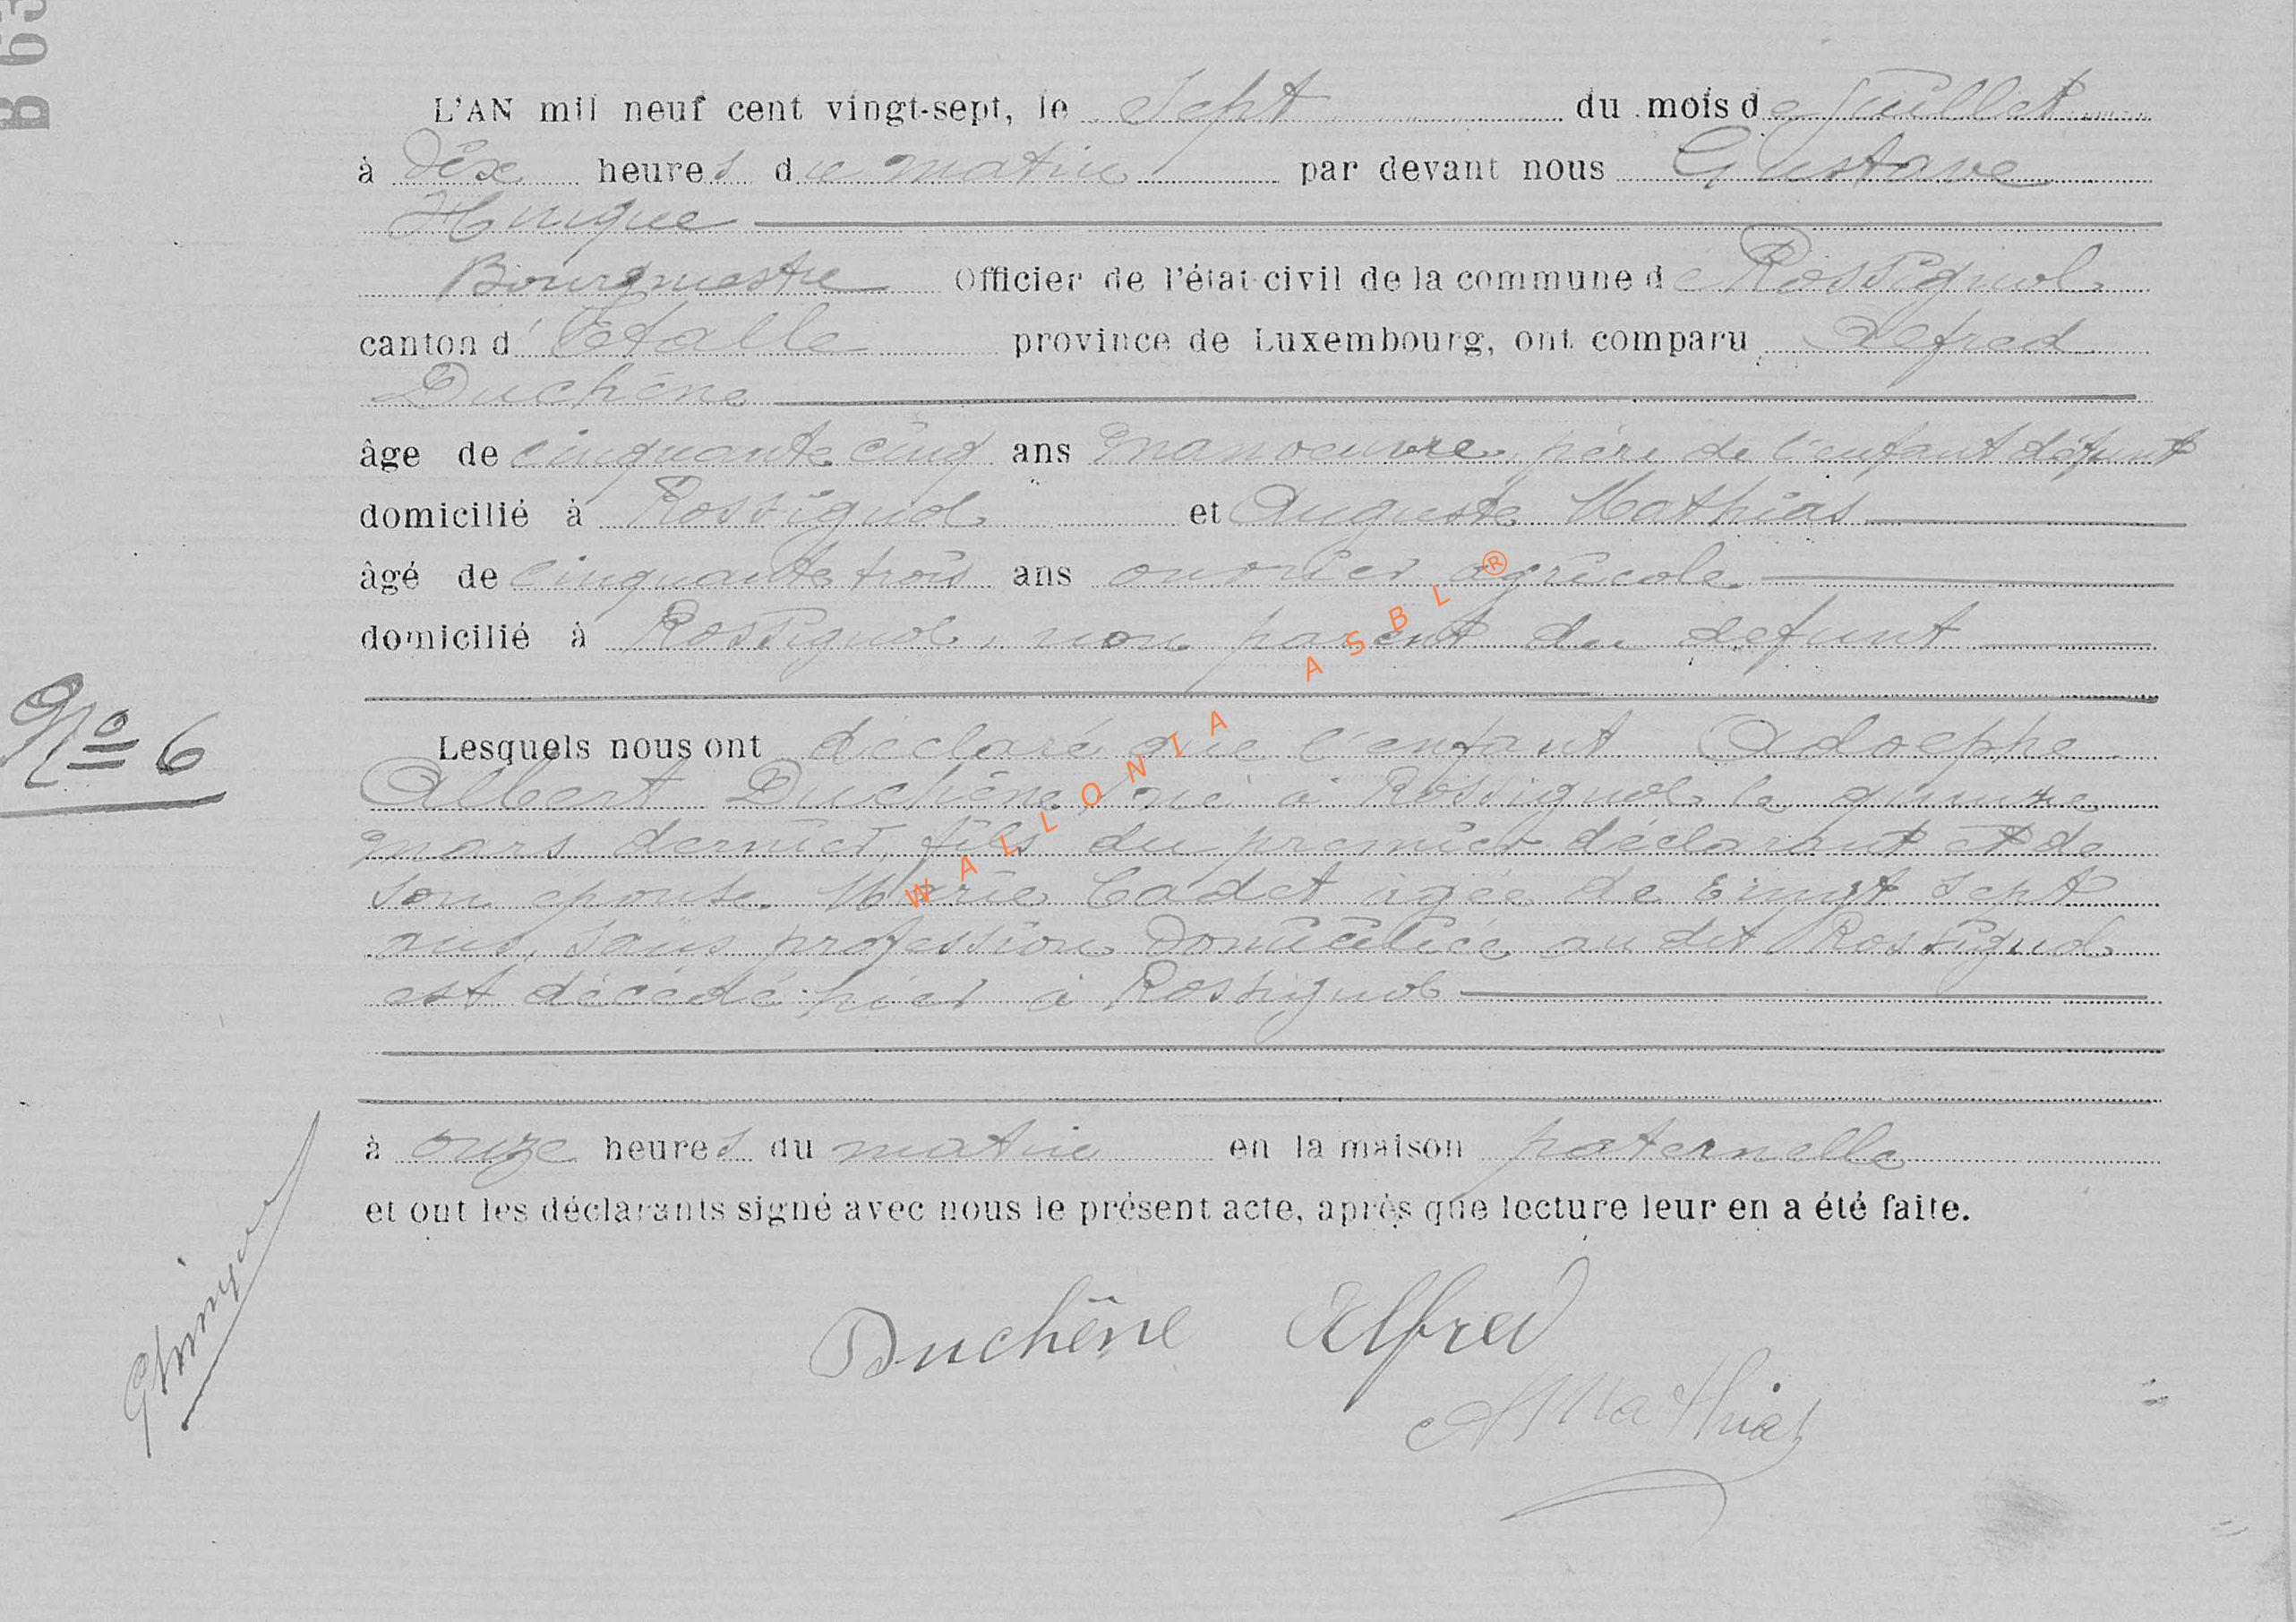 B 63
L'AN mil neuf cent vingt-sept, le sept du mois de Juillet
à dix heures du matin par devant nous Gustave
Hinque
Bourgmestre Officier de l'état civil de la commune de Rossignol
canton d'Etalle province de Luxembourg, ont comparu Alfred
Duchêne
âge de cinquante cinq ans manoeuvre, père de l'enfant défunt
domicilié à Rossignol et Auguste Mathias
âgé de cinquante trois ans ouvrier agricole
domicilié à Rossignol, non parent du defunt
No 6
Lesquels nous ont déclaré que l'enfant Adolphe
Albert Duchêne, né à Rossignol le quinze
mars dernier, fils du premier déclarant et de
son épouse Marie Cadet agée de vingt sept
ans, sans profession domiciliée au dit Rossignol
est décédé hier à Rossignol
à onze heures du matin en la maison paternelle
et ont les déclarants signé avec nous le présent acte, après que lecture leur en a été faite.
Duchêne Alfred
A Mathias
WALLONIA ASBL ®